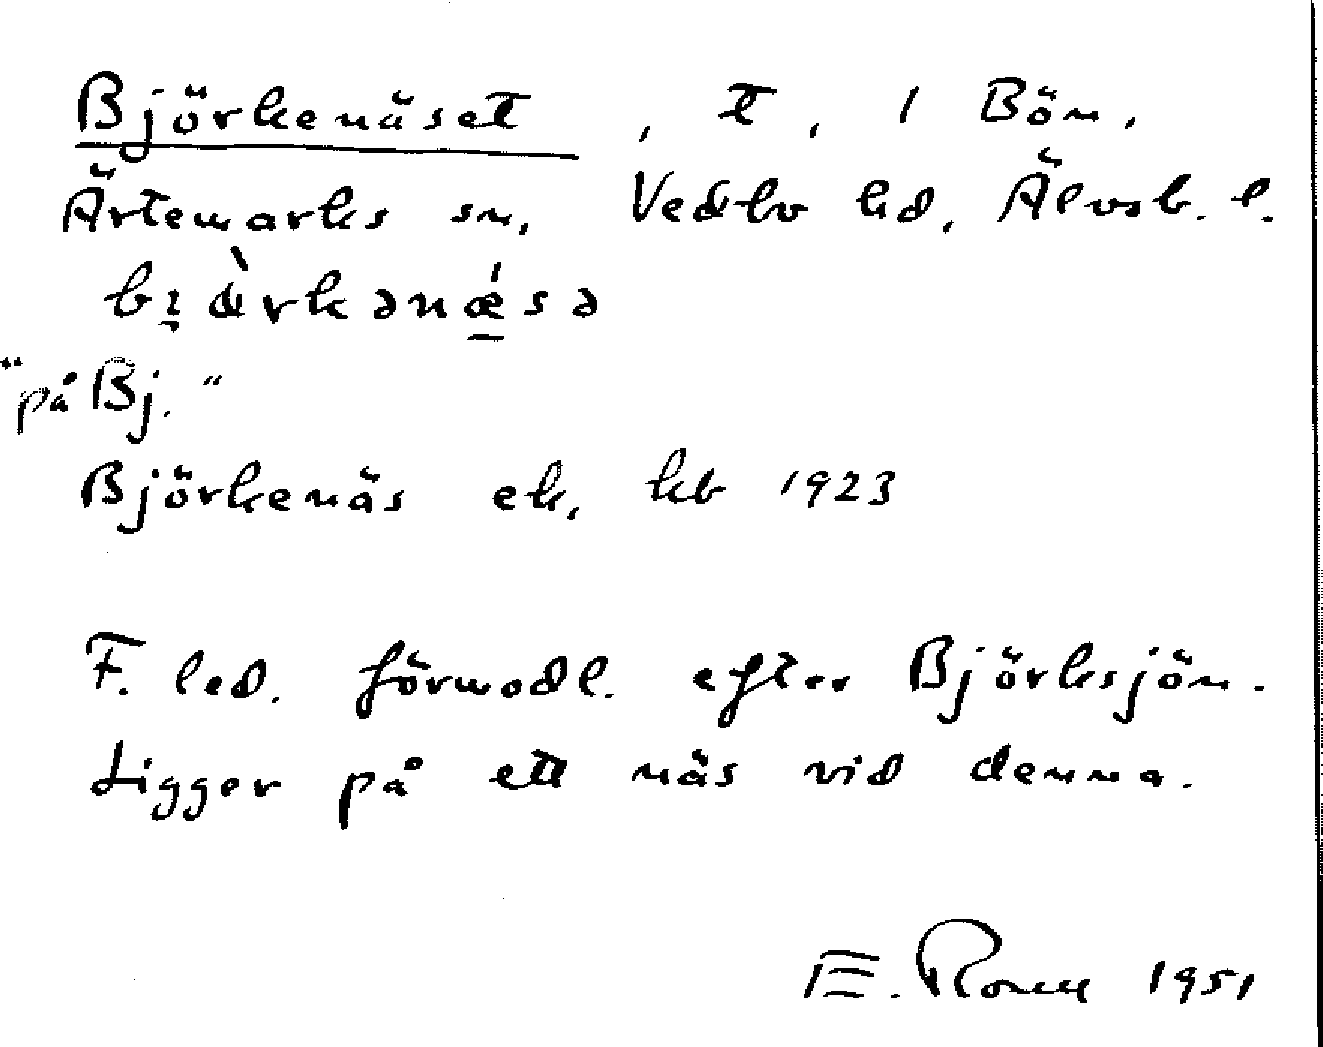 Björkenäset, t, 1 Bön,
Ärtemarks sn, Vedbo hd, Älvsb. l.
bi̯ùrkənǽsə
"på Bj."
Björkenäs ek, kb 1923
F. led. förmodl. efter Björksjön.
Ligger på ett näs vid denna.
E. 1951